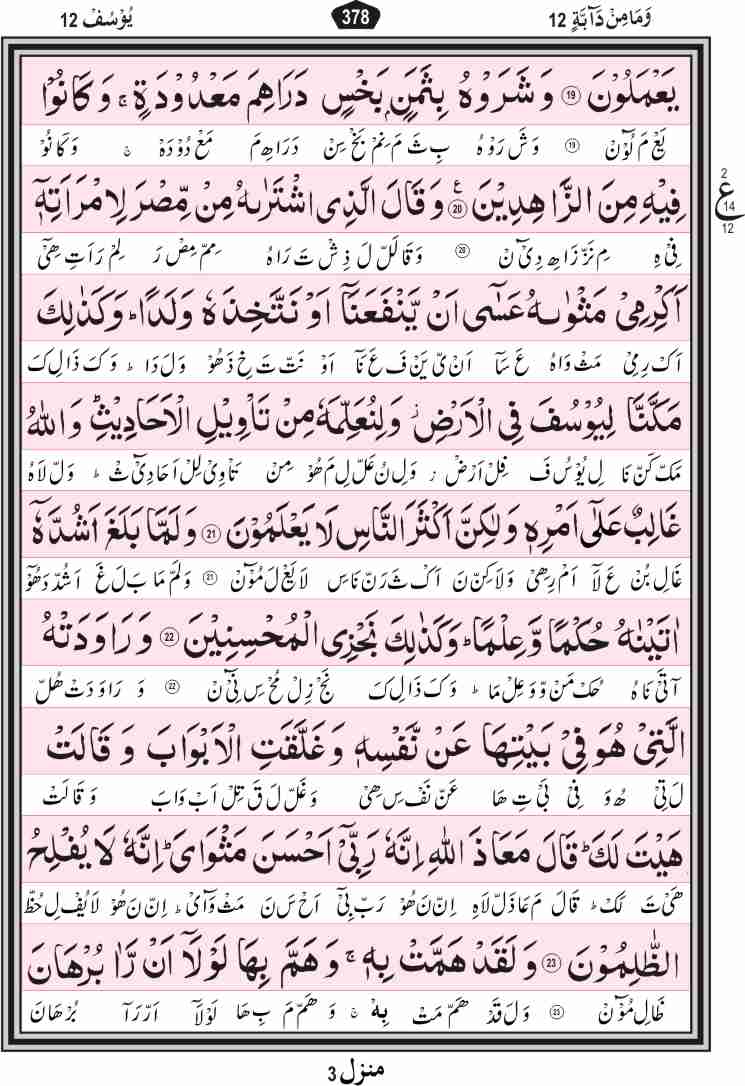 وَمَا مِنْ دَآبَّةٍ 12
378
يُوْسُفْ 12
يَعْمَلُوْنَ ⑲ وَشَرَوْهُ بِثَمَنٍۭ بَخْسٍ دَرَاهِمَ مَعْدُوْدَةٍ ۚ وَكَانُوْا
يَعْ مَ لُوْٓنْ ⑲ وَ شَ رَوْ هُ بِ ثَ مَ نِمْ بَخْ سِنْ دَ رَا هِ مَ مَعْ دُوْ دَهْ ۚ وَ كَا نُوْ
فِيْهِ مِنَ الزَّاهِدِيْنَ ⑳ؑ وَقَالَ الَّذِى اشْتَرٰىهُ مِنْ مِّصْرَ لِامْرَاَتِهٖٓ
فِىْ هِ مِ نَزْ زَا هِ دِىْٓ نْ ⑳ وَ قَا لَلْ لَ ذِشْ تَ رَا هُ مِمْ مِصْ رَ لِمْ رَ اَتِ هِىْٓ
2
ع
14
12
اَكْرِمِىْ مَثْوٰىهُ عَسٰٓى اَنْ يَّنْفَعَنَآ اَوْ نَتَّخِذَهٗ وَلَدًا ؕ وَكَذٰلِكَ
اَكْ رِمِىْ مَثْ وَاهُ عَ سَآ اَنْ ىَّ يَنْ فَ عَ نَآ اَوْ نَتْ تَ خِ ذَ هُوْ وَ لَ دَا ؕ وَ كَ ذَا لِ كَ
مَكَّنَّا لِيُوْسُفَ فِى الْاَرْضِ ۫ وَلِنُعَلِّمَهٗ مِنْ تَاْوِيْلِ الْاَحَادِيْثِ ؕ وَاللّٰهُ
مَكْ كَنْ نَا لِ يُوْ سُ فَ فِلْ اَرْضْ ۫ وَ لِ نُ عَلْ لِ مَ هُوْ مِنْ تَاْ وِىْ لِلْ اَ حَا دِىْٓ ثْ ؕ وَلْ لَاهُ
غَالِبٌ عَلٰٓى اَمْرِهٖ وَلٰكِنَّ اَكْثَرَ النَّاسِ لَا يَعْلَمُوْنَ ㉑ وَلَمَّا بَلَغَ اَشُدَّهٗٓ
غَا لِ بُنْ عَ لَآ اَمْ رِهِىْ وَ لَا كِنْ نَ اَكْ ثَ رَنْ نَاسِ لَا يَعْ لَ مُوْٓنْ ㉑ وَ لَمْ مَا بَ لَ غَ اَ شُدْ دَ هُوْٓ
اٰتَيْنٰهُ حُكْمًا وَّعِلْمًا ؕ وَكَذٰلِكَ نَجْزِى الْمُحْسِنِيْنَ ㉒ وَرَاوَدَتْهُ
آ تَىْ نَاهُ حُكْ مَنْ وَّ وَ عِلْ مَا ؕ وَ كَ ذَا لِ كَ نَجْ زِلْ مُحْ سِ نِىْٓ نْ ㉒ وَ رَا وَ دَتْ هُلْ
الَّتِىْ هُوَ فِىْ بَيْتِهَا عَنْ نَّفْسِهٖ وَغَلَّقَتِ الْاَبْوَابَ وَقَالَتْ
لَ تِىْ هُ وَ فِىْ بَىْ تِ هَا عَنْ نَفْ سِ هِىْ وَ غَلْ لَ قَ تِلْ اَبْ وَابَ وَ قَالَتْ
هَيْتَ لَكَ ؕ قَالَ مَعَاذَ اللّٰهِ اِنَّهٗ رَبِّىْٓ اَحْسَنَ مَثْوَاىَ ؕ اِنَّهٗ لَا يُفْلِحُ
هَىْ تَ لَكْ ؕ قَالَ مَ عَا ذَلْ لَاهِ اِنْ نَ هُوْ رَبْ بِىْٓ اَحْ سَ نَ مَثْ وَآىْ ؕ اِنْ نَ هُوْ لَا يُفْ لِ حُظْ
الظّٰلِمُوْنَ ㉓ وَلَقَدْ هَمَّتْ بِهٖ ۚ وَهَمَّ بِهَا لَوْلَآ اَنْ رَّاٰ بُرْهَانَ
ظَا لِ مُوْٓنْ ㉓ وَ لَ قَدْ هَمْ مَتْ بِهْ ۚ وَ هَمْ مَ بِ هَا لَوْ لَآ اَرْ رَ آ بُرْ هَانَ
منزل 3